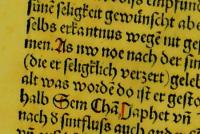 sūne seligkeit gewünschet abe
selbs erkantnus wegē nit ges
men. Als nw noe nach der sin
(die er seligklich verzert) geleb
alt was wordē do ist er gesto
halb Sem Chā Japhet vñ
nach d sintfluss auch